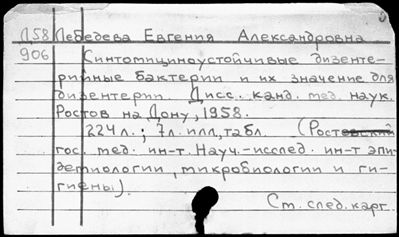 Д58 Лебедева Евгения Александровна
906 Синтомициноустойчивые дизенте-
рийные бактерии и их значение для
дизентерии. Дисс. канд. мед. наук.
Ростов на Дону, 1958.
224 л.; 7л. илл, табл. (Ростовский
гос. мед. ин-т. Науч.-исслед. ин-т эпи-
детиологии, микробиологии и ги-
гиены).
См. след. карт.